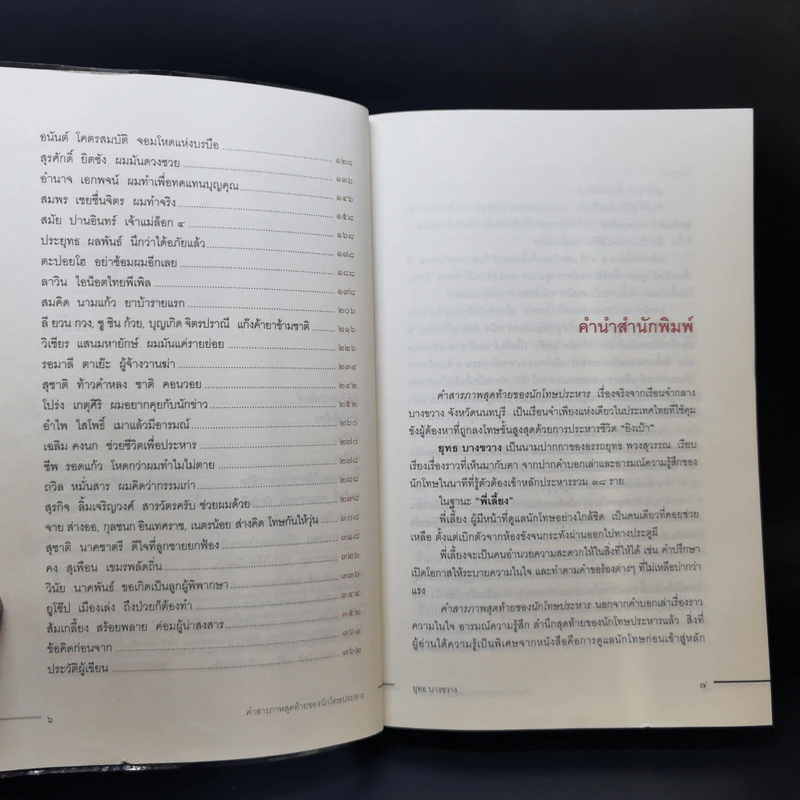 อนันต์ โคตรสมบัติ จอมโหดแห่งบรบือ ๑๒๘
สุรศักดิ์ ยิตซัง ผมมันดวงซวย ๑๓๖
อำนาจ เอกพจน์ ผมทำเพื่อทดแทนบุญคุณ ๑๔๖
สมพร เชยชื่นจิตร ผมทำจริง ๑๕๘
สมัย ปานอินทร์ เจ้าแม่ล็อก ๔ ๑๖๘
ประยุทธ ผลพันธ์ นึกว่าได้อภัยแล้ว ๑๗๘
ตะปอยโฮ อย่าซ้อมผมอีกเลย ๑๘๘
ลาวิน ไอน็อตไทยพีเพิล ๑๙๘
สมคิด นามแก้ว ยาบ้ารายแรก ๒๐๖
ลี ยวน กวง, ชู ชิน ก้วย, บุญเกิด จิตรปราณี แก๊งค้ายาข้ามชาติ ๒๑๖
วิเชียร แสนมหายักษ์ ผมมันแค่รายย่อย ๒๒๖
รอมาลี ตาเย๊ะ ผู้จ้างวานฆ่า ๒๓๔
สุชาติ ท้าวคำหลง ชาติ คอนวอย ๒๔๒
โปร่ง เกตุศิริ ผมอยากคุยกับนักข่าว ๒๕๒
อำไพ ใสโพธิ์ เมาแล้วมีอารมณ์ ๒๖๐
เฉลิม คงนก ช่วยชีวิตเพื่อประหาร ๒๗๐
ชีพ รอดแก้ว โหดกว่าผมทำไมไม่ตาย ๒๗๘
ถวิล หมั่นสาร ผมคิดว่ากรรมเก่า ๒๘๘
สุรกิจ ลิ้มเจริญวงศ์ สารวัตรครับ ช่วยผมด้วย ๒๙๘
จาย ล่างออ, กุลชนก อินเทศราช, เนตรน้อย ส่างคิด โทษกันให้วุ่น ๓๐๘
สุชาติ นาคชาตรี ดีใจที่ลูกชายยกฟ้อง ๓๑๘
คง สุเพือน เขมรพลัดถิ่น ๓๒๖
วินัย นาคพันธ์ ขอเกิดเป็นลูกผู้พิพากษา ๓๓๖
ยูโซ๊ป เมืองเล่ง ถึงป่วยก็ต้องทำ ๓๔๔
ส้มเกลี้ยง สร้อยพลาย ค่อมผู้น่าสงสาร ๓๕๒
ข้อคิดก่อนจาก ๓๖๑
ประวัติผู้เขียน ๓๖๒
๖ คำสารภาพสุดท้ายของนักโทษประหาร
คำนำสำนักพิมพ์
คำสารภาพสุดท้ายของนักโทษประหาร เรื่องจริงจากเรือนจำกลาง
บางขวาง จังหวัดนนทบุรี เป็นเรือนจำเพียงแห่งเดียวในประเทศไทยที่ใช้คุม
ขังผู้ต้องหาที่ถูกลงโทษขั้นสูงสุดด้วยการประหารชีวิต "ยิงเป้า"
ยุทธ บางขวาง เป็นนามปากกาของอรรถยุทธ พวงสุวรรณ เรียบ
เรียงเรื่องราวที่เห็นมากับตา จากปากคำบอกเล่าและอารมณ์ความรู้สึกของ
นักโทษในนาทีที่รู้ตัวต้องเข้าหลักประหารรวม ๓๘ ราย
ในฐานะ "พี่เลี้ยง"
พี่เลี้ยง ผู้มีหน้าที่ดูแลนักโทษอย่างใกล้ชิด เป็นคนเดียวที่คอยช่วย
เหลือ ตั้งแต่เบิกตัวจากห้องขังจนกระทั่งผ่านออกไปทางประตูผี
พี่เลี้ยงจะเป็นคนอำนวยความสะดวกให้ในสิ่งที่ให้ได้ เช่น คำปรึกษา
เปิดโอกาสให้ระบายความในใจ และทำตามคำขอร้องต่างๆ ที่ไม่เหลือบ่ากว่า
แรง
คำสารภาพสุดท้ายของนักโทษประหาร นอกจากคำบอกเล่าเรื่องราว
ความในใจ อารมณ์ความรู้สึก สำนึกสุดท้ายของนักโทษประหารแล้ว สิ่งที่
ผู้อ่านได้ความรู้เป็นพิเศษจากหนังสือคือการดูแลนักโทษก่อนเข้าสู่หลัก
ยุทธ บางขวาง ๗